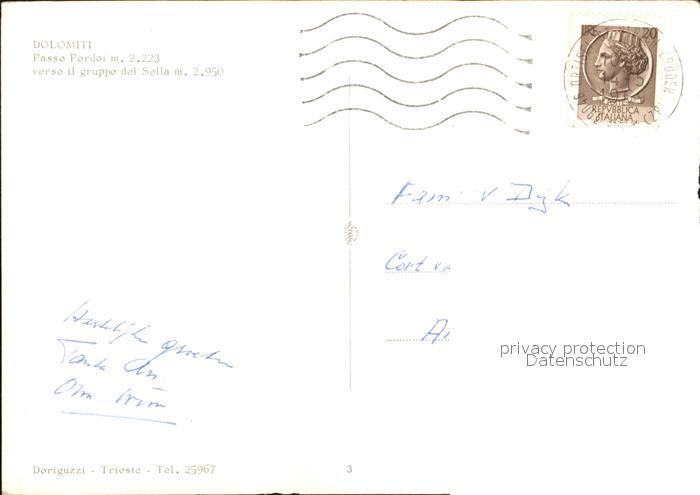 DOLOMITI
Passo Pordoi m. 2.223
verso il gruppo del Sella m. 2.950
LIRE 20
REPVBBLICA
ITALIANA
Fam v Dijk
Cort va
A
privacy protection
Datenschutz
Hartelijke groeten
Tante An
Oom Wim
Doriguzzi - Trieste - Tel. 25967
3